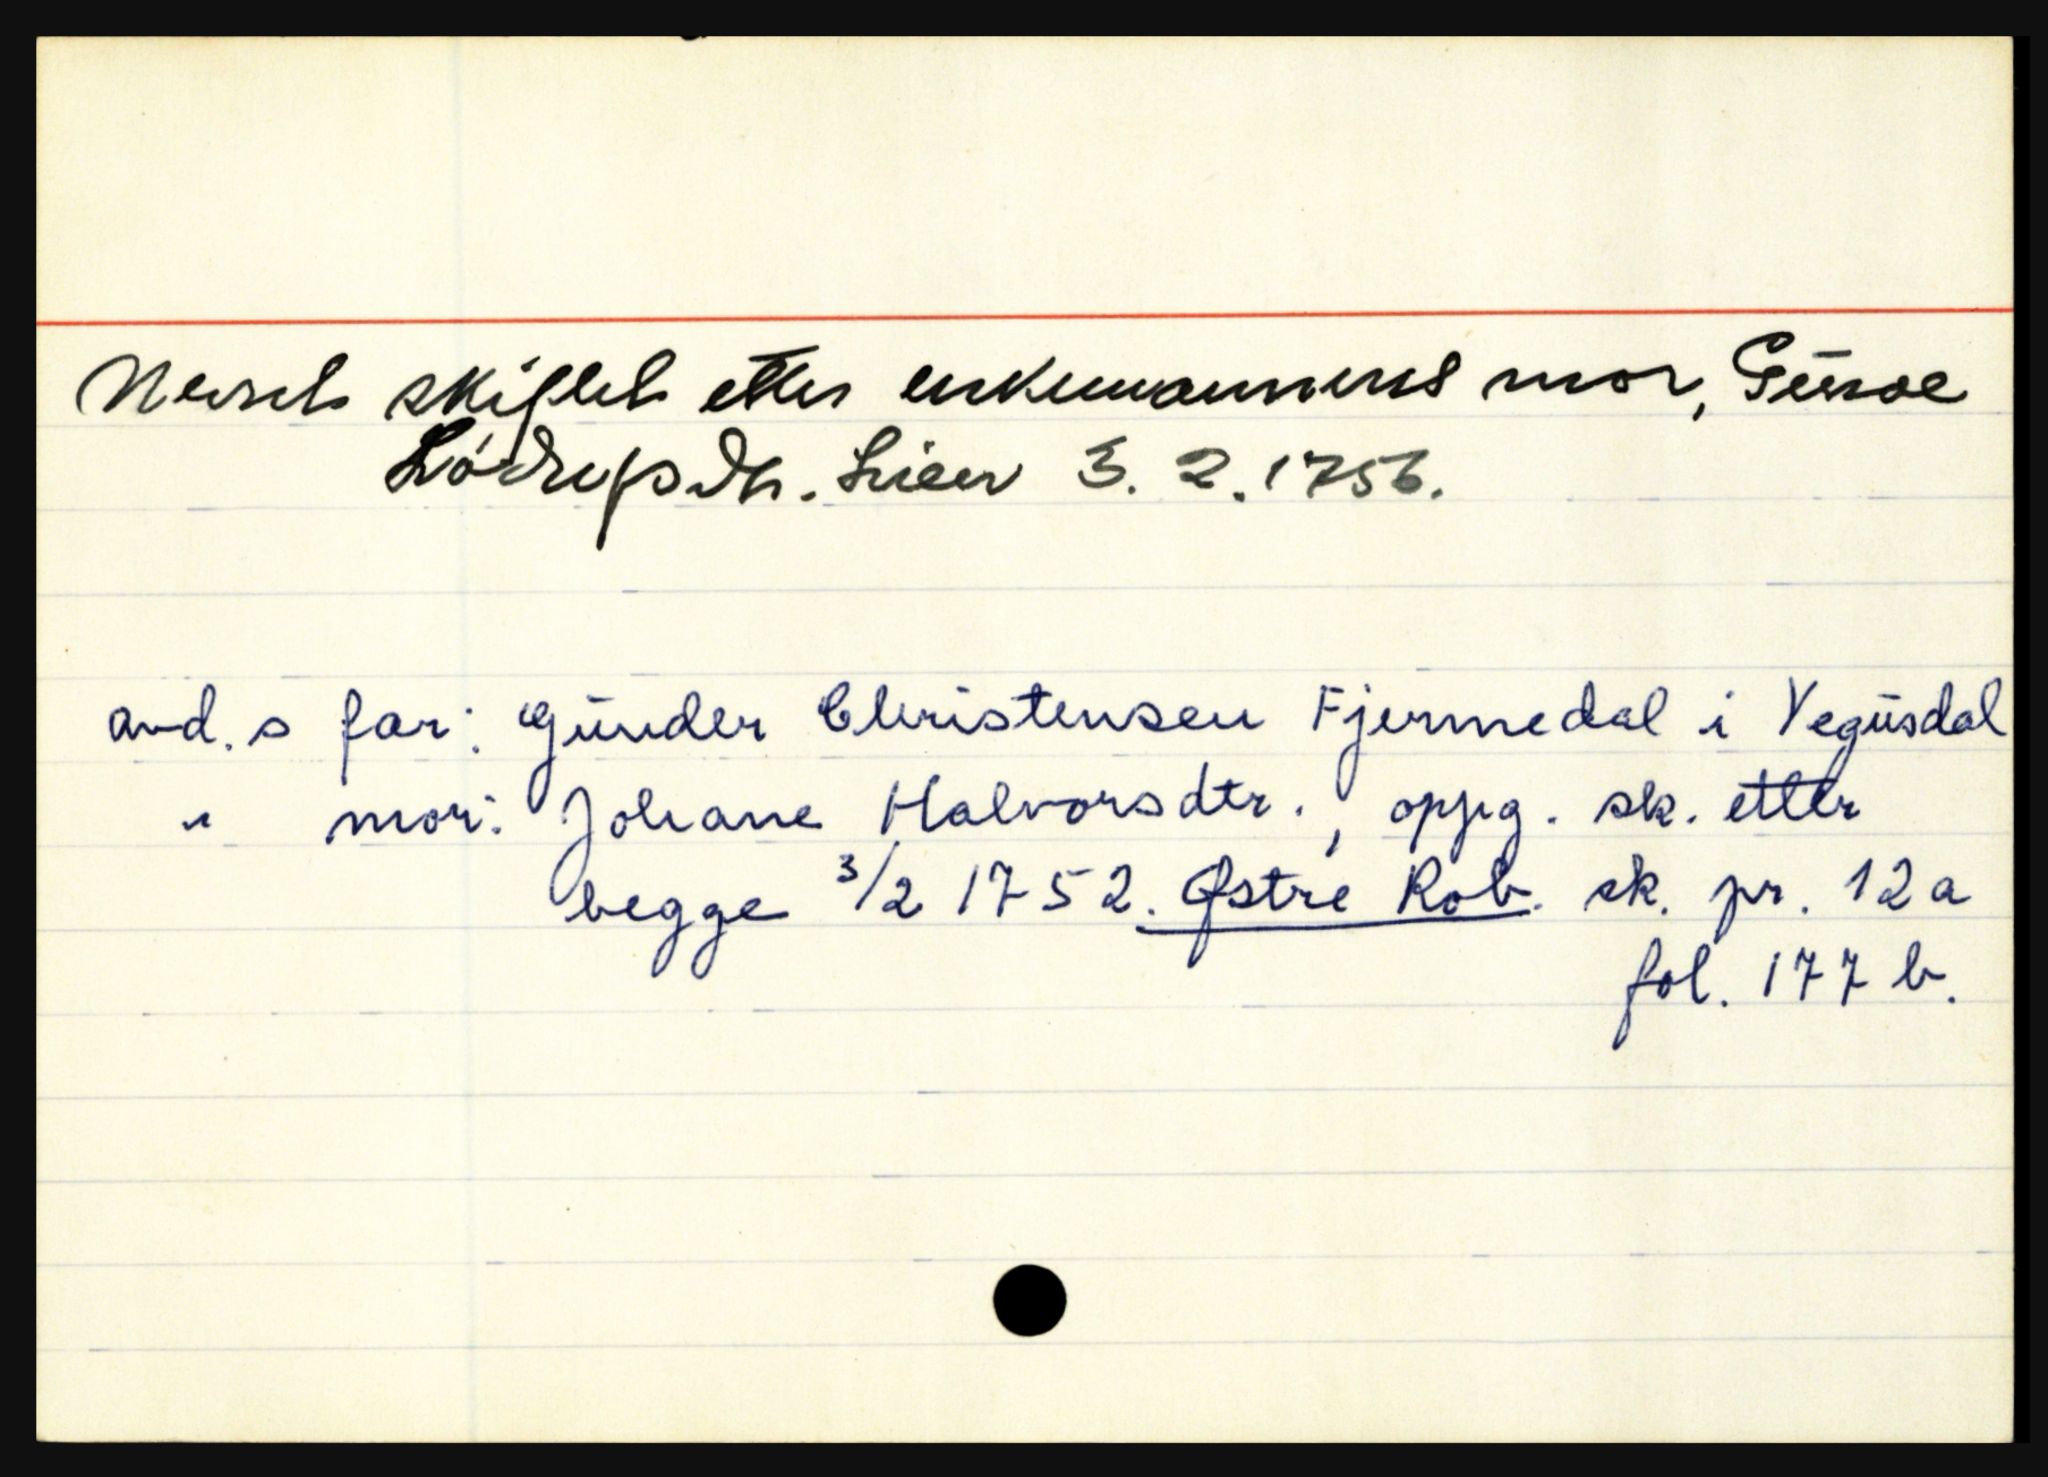 Nevnt skiftet etter enkemannens mor, Günoe
Lódrupsdtr. Lien 3. 2. 1756.
avd. s far: Günder Christensen Fjermedal i Vegüsdal
" mor: Johane Halvorsdtr., oppg. sk. etter
begge 3/2 1752. Østre Rob. sk. pr. 12a
fol. 177 b.